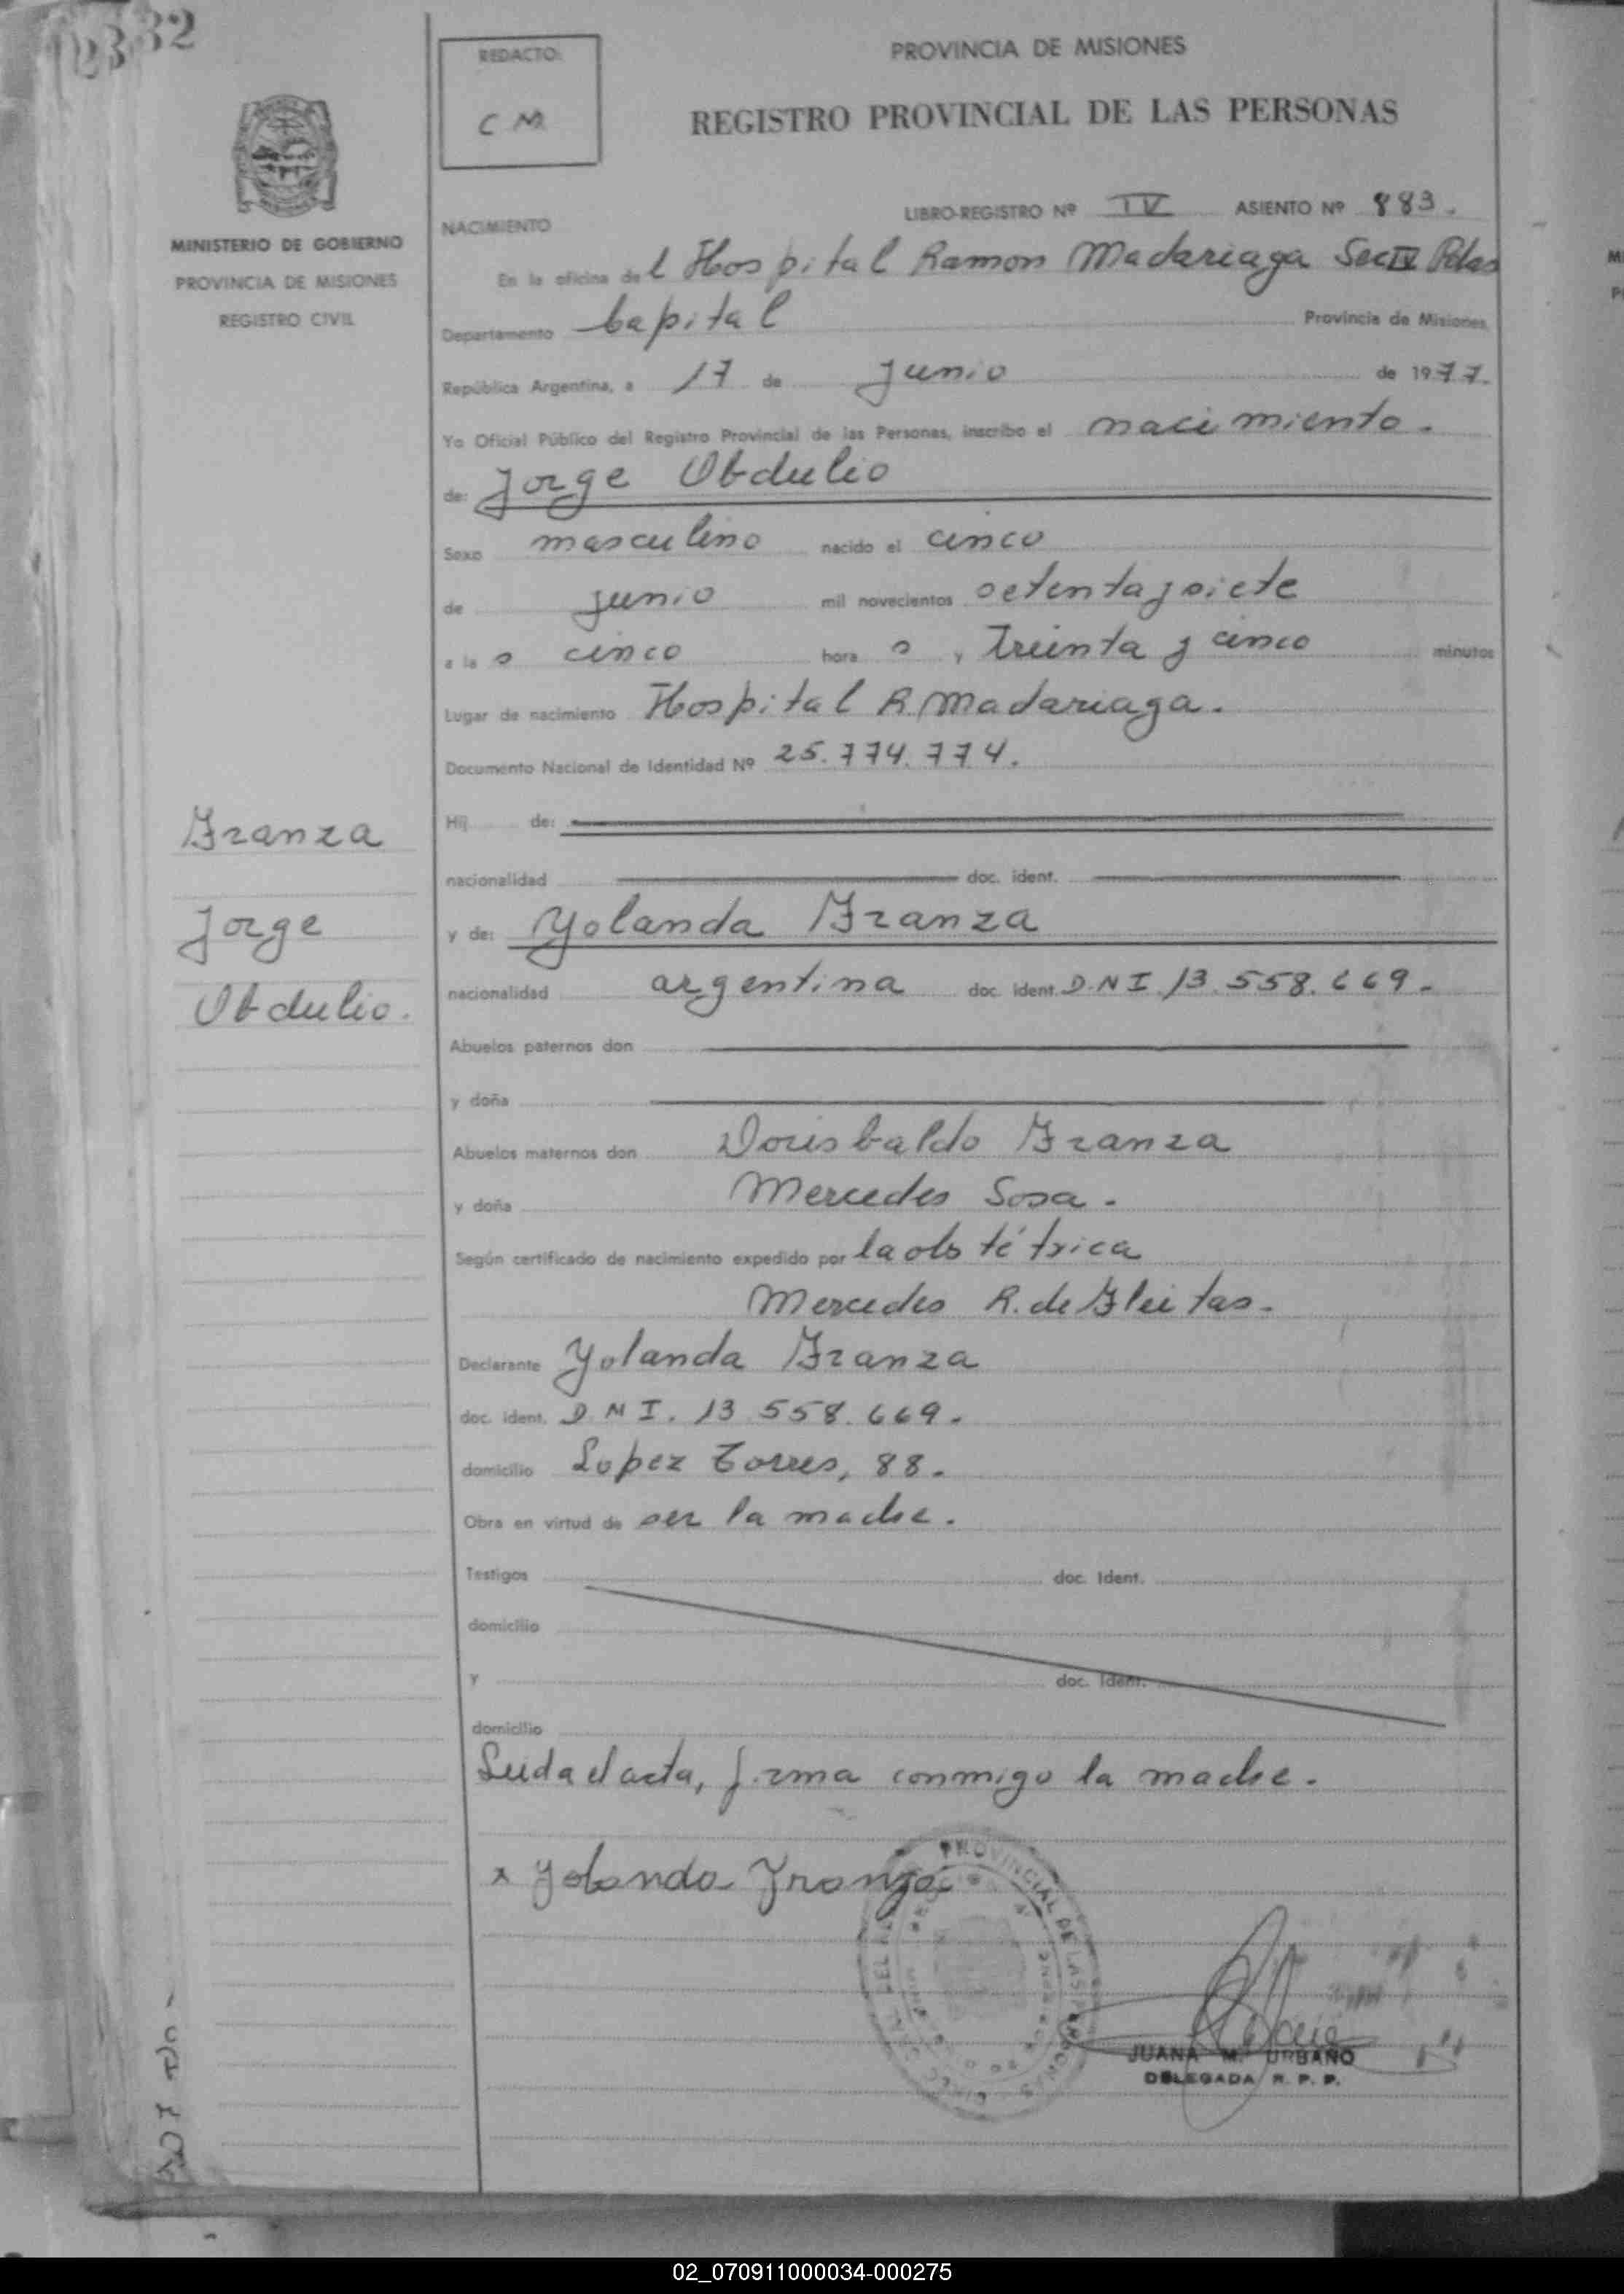 2332
REDACTO:
C M
PROVINCIA DE MISIONES
REGISTRO PROVINCIAL DE LAS PERSONAS
MINISTERIO DE GOBIERNO
PROVINCIA DE MISIONES
REGISTRO CIVIL
LIBRO-REGISTRO Nº IV ASIENTO Nº 883.
NACIMIENTO
En la oficina del Hospital Ramon Madariaga Sec IV Pdas
Departamento Capital Provincia de Misiones,
República Argentina, a 17 de Junio de 1977.
Yo Oficial Público del Registro Provincial de las Personas, inscribo el nacimiento.
de: Jorge Obdulio
Sexo masculino nacido el cinco
de junio mil novecientos setenta y siete
a las cinco horas y treinta y cinco minutos
Lugar de nacimiento Hospital R. Madariaga.
Documento Nacional de Identidad Nº 25.774.774.
Hij de:
nacionalidad doc. ident.
y de: Yolanda Franza
nacionalidad argentina doc. ident. D.N.I. 13.558.669.
Franza
Jorge
Obdulio.
Abuelos paternos don
y doña
Abuelos maternos don Dorisbaldo Franza
y doña Mercedes Sosa.
Según certificado de nacimiento expedido por la obstétrica
Mercedes R. de Fleitas.
Declarante Yolanda Franza
doc. ident. D.N.I. 13.558.669.
domicilio Lopez Torres, 88.
Obra en virtud de ser la madre.
Testigos doc. Ident.
domicilio
y doc. Ident.
domicilio
Leida el acta, firma conmigo la madre.
x Yolanda Franza
PROVINCIAL DE LAS PERSONAS
JUANA M. URBANO
DELEGADA R. P. P.
02_070911000034-000275